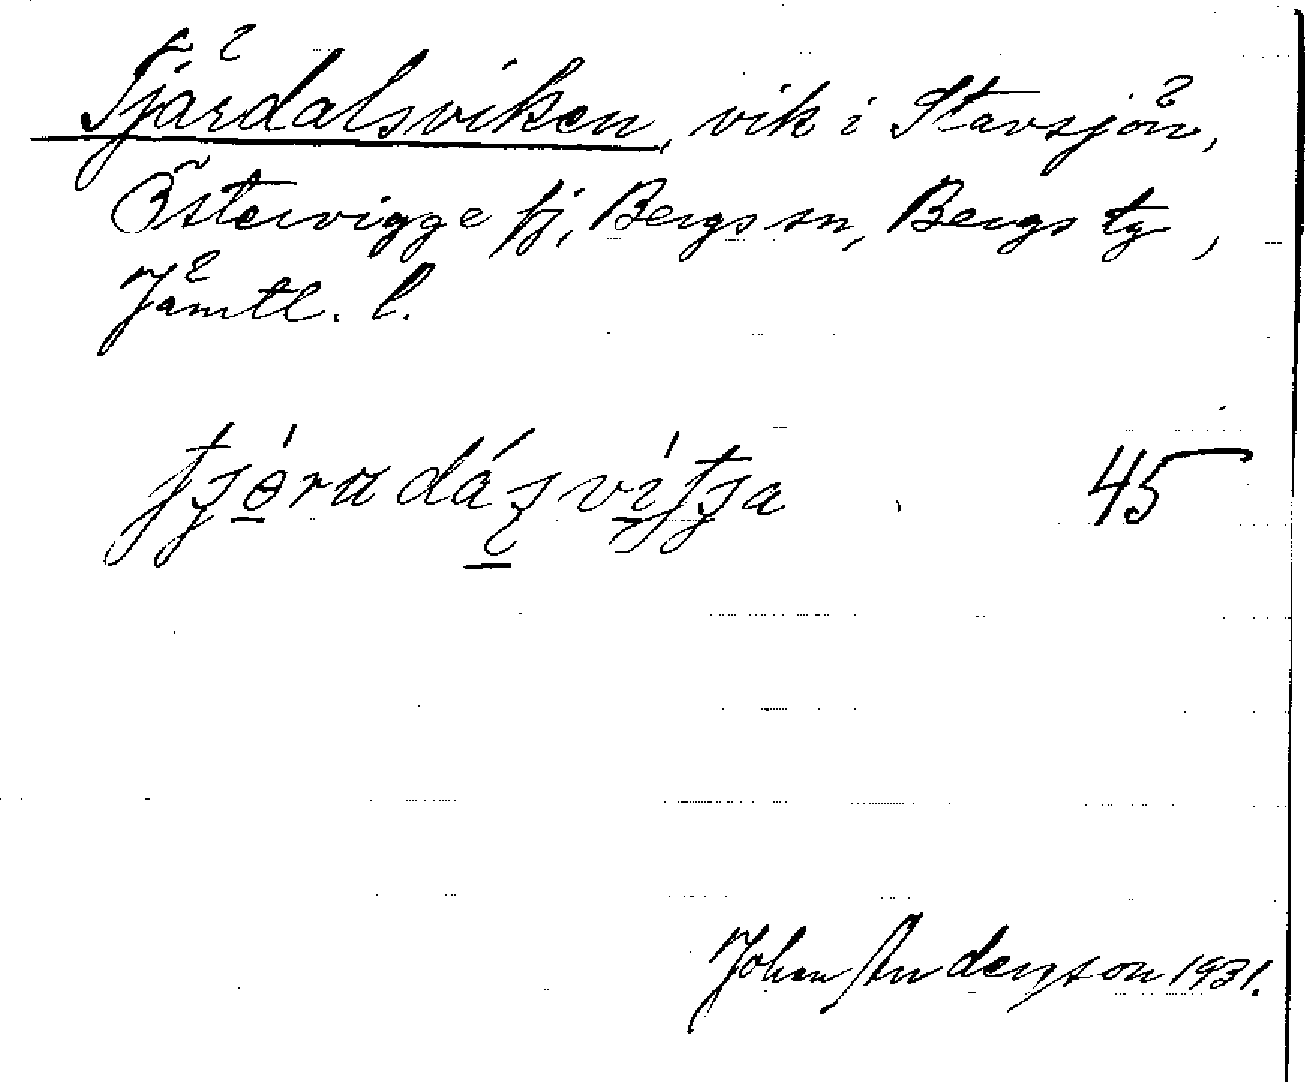 Tjärdalsviken, vik i Stavsjön,
Östervigge fj, Bergs sn, Bergs tg,
Jämtl. l.
45
Johan Anderson 1931.